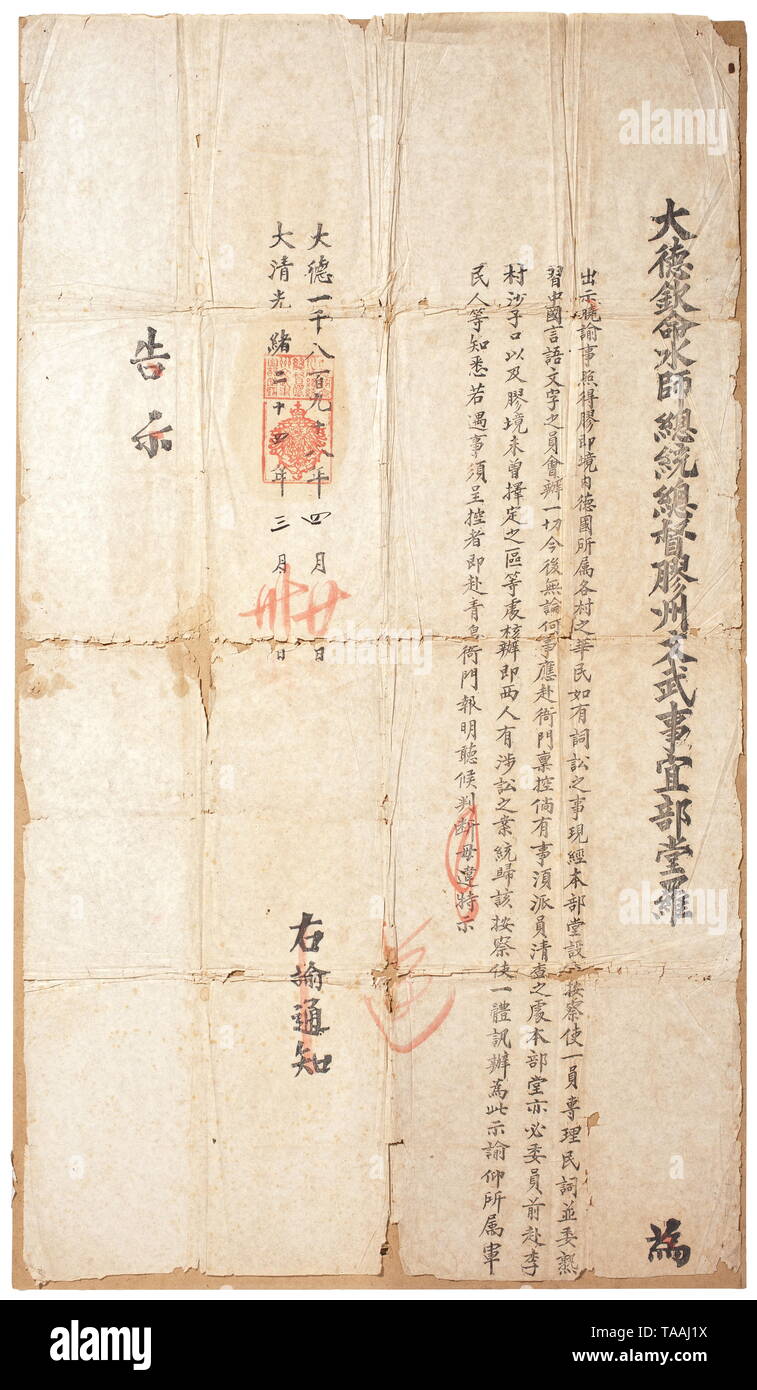 大德欽命水師總統總督膠州文武事宜部堂羅 為
出示曉諭事照得膠即境內德國所屬各村之華民如有詞訟之事現經本部堂設立按察使一員專理民詞並委熟
習中國言語文字之員會辦一切今後無論何事應赴衙門稟控倘有事須派員清查之處本部堂亦必委員前赴李
村沙子口以及膠境未曾擇定之區等處核辦即兩人有涉訟之案統歸該按察使一體訊辦為此示諭仰所屬軍
民人等知悉若遇事須呈控者即赴青島衙門報明聽候判斷毋違特示
右諭通知
大德一千八百九十八年四月廿日
大清光緒二十四年三月卅日
告示
alamy
alamy
alamy
Image ID: TAAJ1X
www.alamy.com